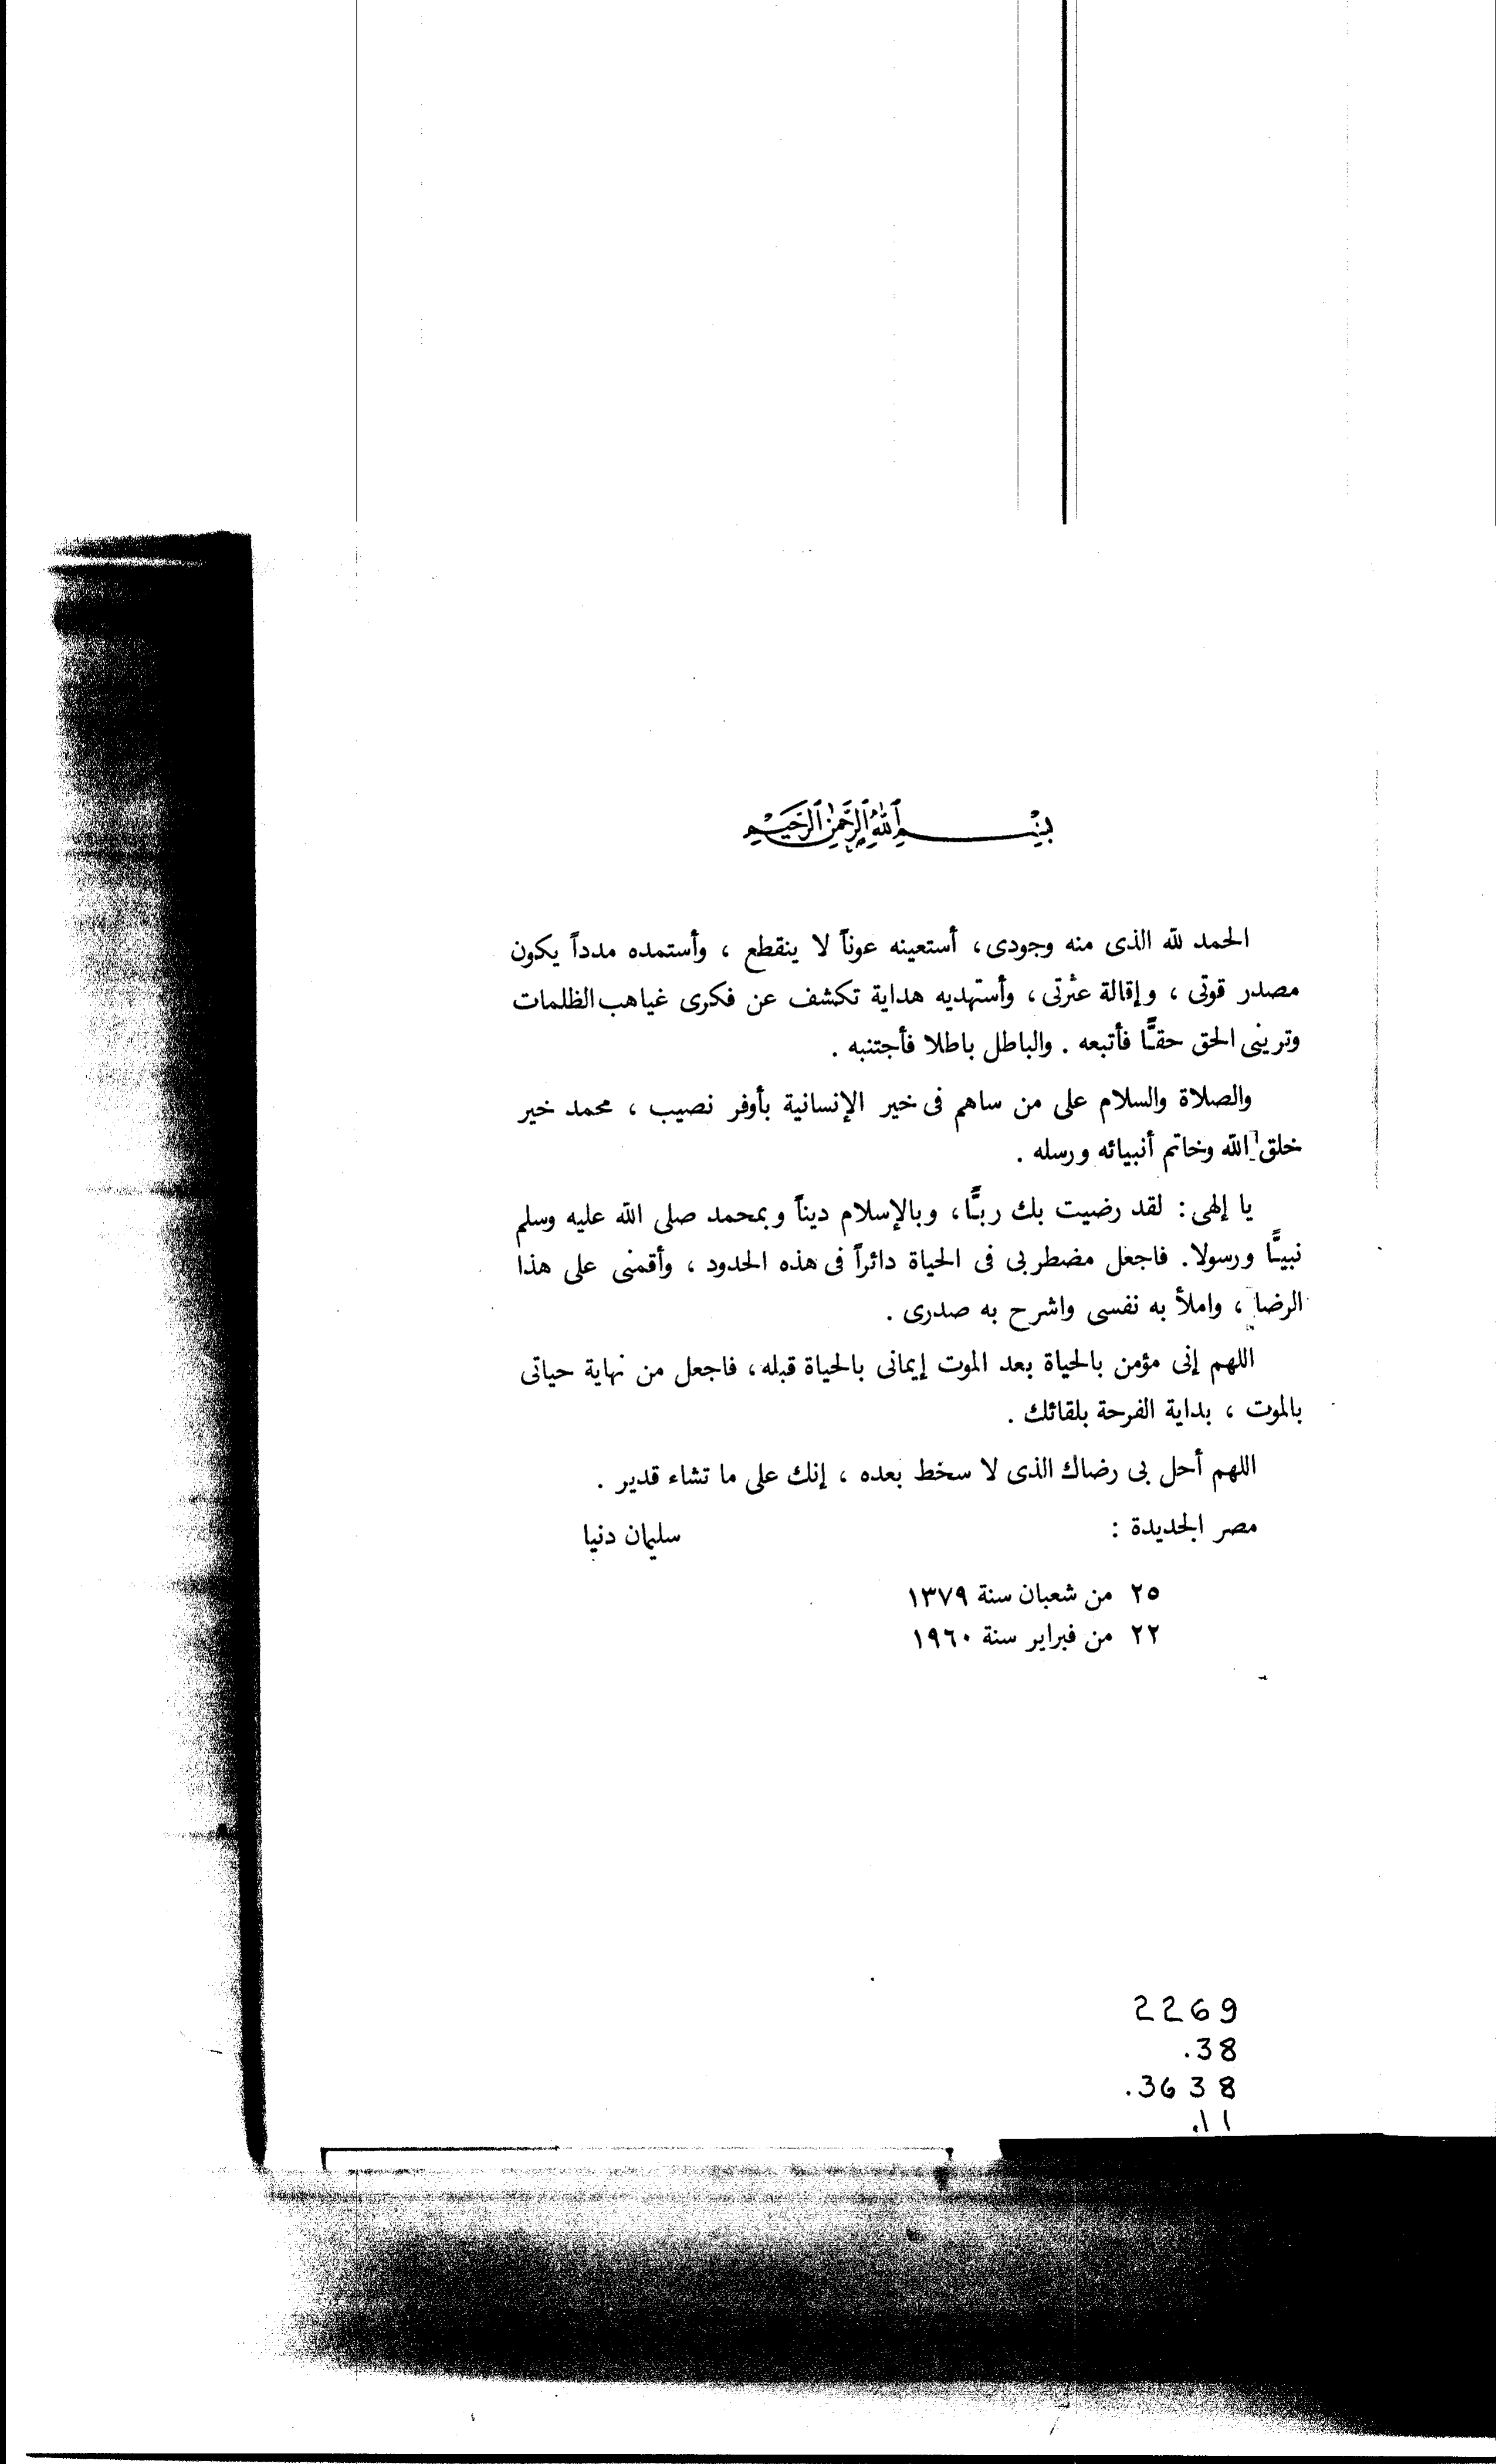 بِسْمِ ٱللَّهِ ٱلرَّحْمَٰنِ ٱلرَّحِيمِ
الحمد لله الذى منه وجودى، أستعينه عوناً لا ينقطع ، وأستمده مدداً يكون
مصدر قوتى ، وإقالة عثرتى، وأستهديه هداية تكشف عن فكرى غياهب الظلمات
وترينى الحق حقًّا فأتبعه . والباطل باطلا فأجتنبه .
والصلاة والسلام على من ساهم فى خير الإنسانية بأوفر نصيب ، محمد خير
خلق الله وخاتم أنبيائه ورسله .
يا إلهى: لقد رضيت بك ربًّا، وبالإسلام ديناً وبمحمد صلى الله عليه وسلم
نبيًّا ورسولا. فاجعل مضطربى فى الحياة دائراً فى هذه الحدود ، وأقمنى على هذا
الرضا ، واملأ به نفسى واشرح به صدرى .
اللهم إنى مؤمن بالحياة بعد الموت إيمانى بالحياة قبله، فاجعل من نهاية حياتى
بالموت ، بداية الفرحة بلقائك .
اللهم أحل بى رضاك الذى لا سخط بعده ، إنك على ما تشاء قدير .
مصر الجديدة : سليمان دنيا
٢٥ من شعبان سنة ١٣٧٩
٢٢ من فبراير سنة ١٩٦٠
2269
.38
.3638
.11